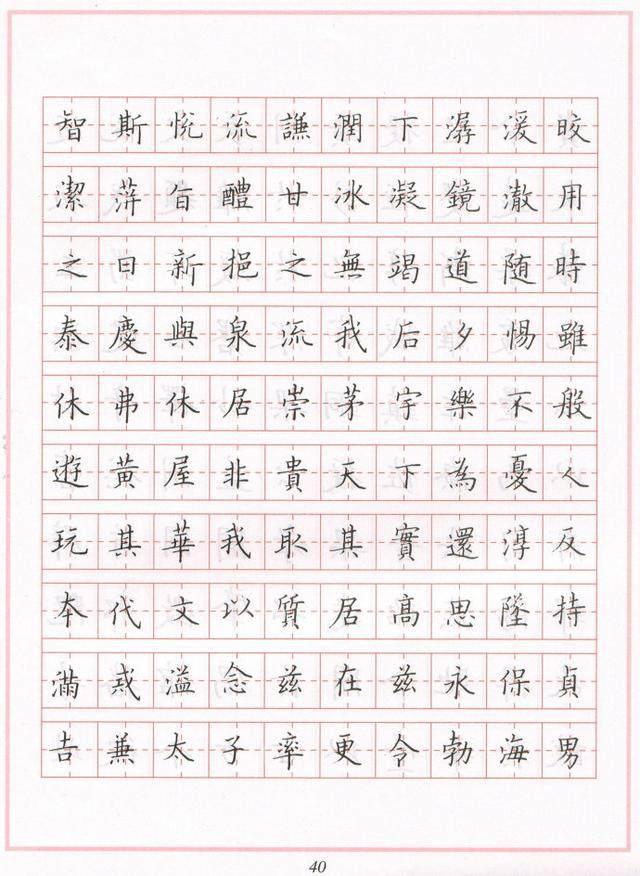 智斯悅流謙潤下潺湲晈
潔萍旨醴甘冰凝鏡澈用
之日新挹之無竭道随時
泰慶與泉流我后夕惕雖
休弗休居崇茅宇樂不般
遊黃屋非貴天下為憂人
玩其華我取其實還淳反
本代文以質居高思墜持
滿戒溢念茲在茲永保貞
吉兼太子率更令勃海男
40